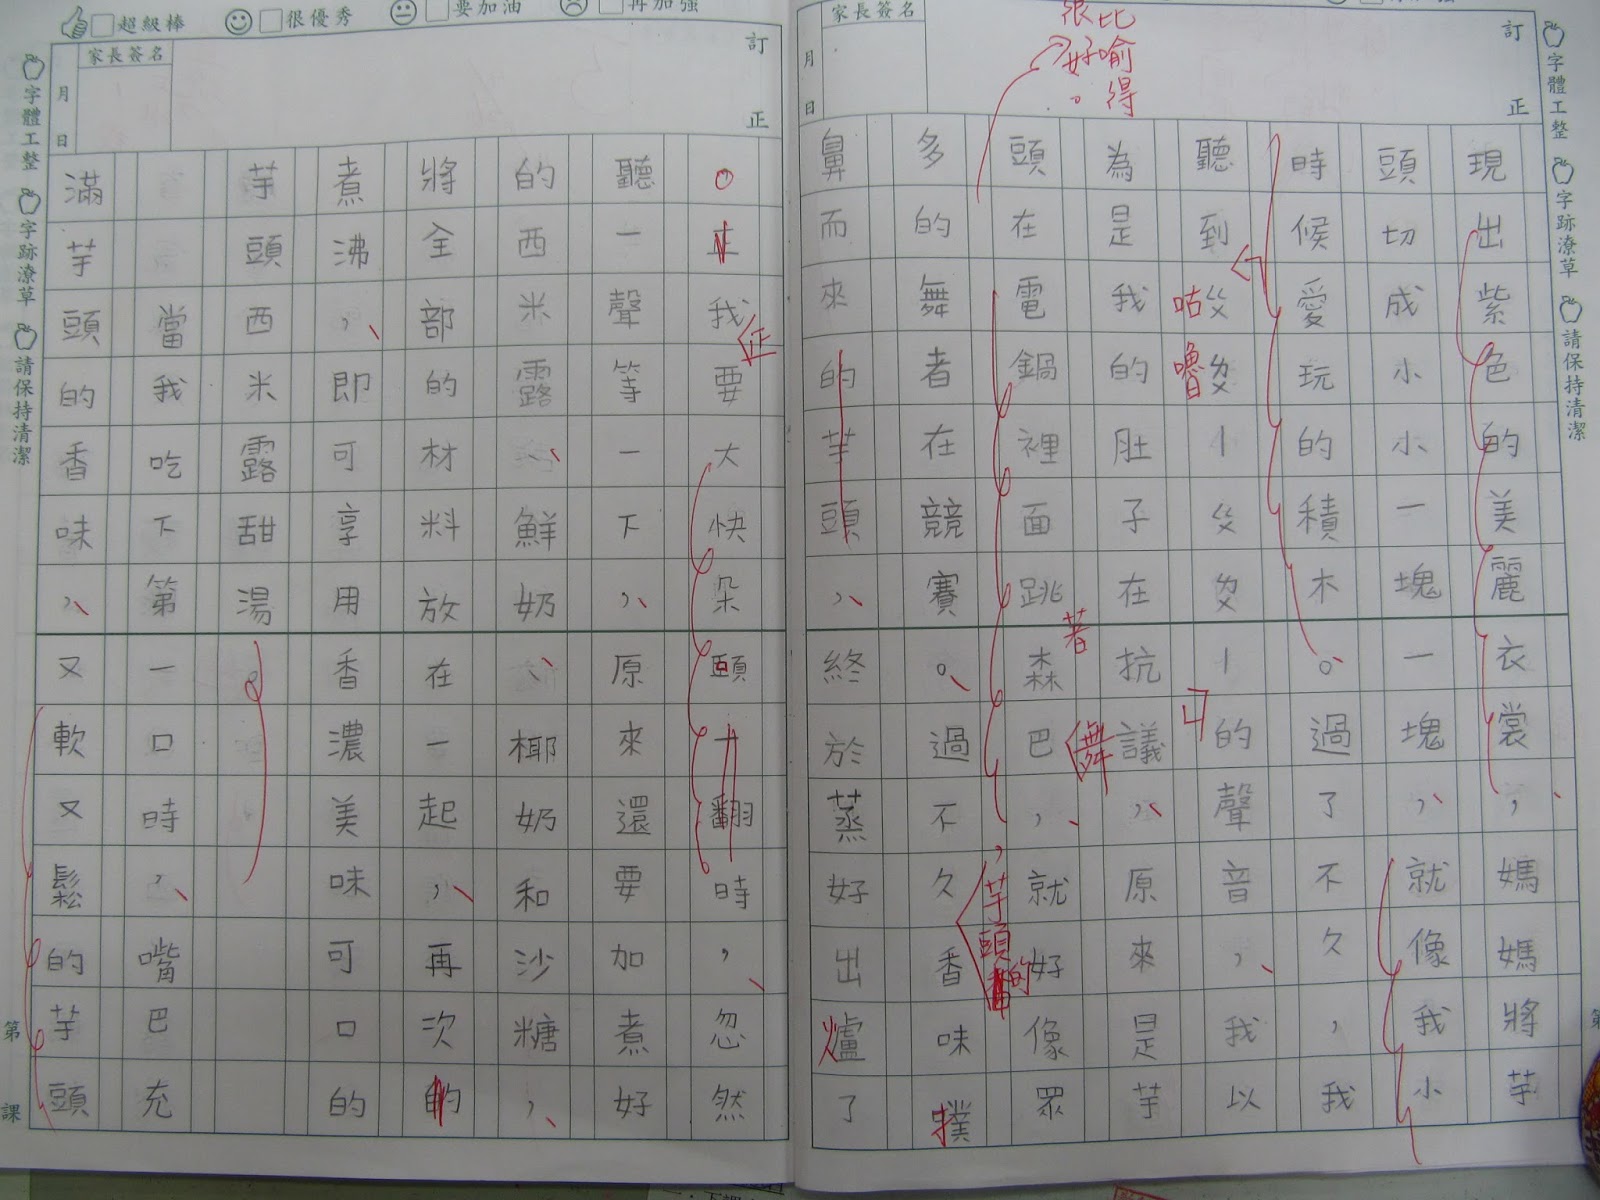 比喻得
很好。
家長簽名
月 日
訂正
字體工整 字跡潦草 請保持清潔
現出紫色的美麗衣裳，媽媽將芋
頭切成小小一塊一塊，就像我小
時候愛玩的積木。過了不久，我
聽到的聲音，我以
咕嚕
為是我的肚子在抗議，原來是芋
著
舞
頭在電鍋裡面跳森巴，就好像眾
芋頭的
多的舞者在競賽。過不久香味撲
鼻而來的芋頭，終於蒸好出爐了
超級棒 很優秀 要加油 再加強
家長簽名
月 日
訂正
。正我要大快朵頤十翻時，忽然
正
聽一聲等一下，原來還要加煮好
的西米露、鮮奶、椰奶和沙糖，
將全部的材料放在一起，再次的
煮沸，即可享用香濃美味可口的
芋頭西米露甜湯。
當我吃下第一口時，嘴巴充
滿芋頭的香味，又軟又鬆的芋頭
字體工整 字跡潦草 請保持清潔
第 課